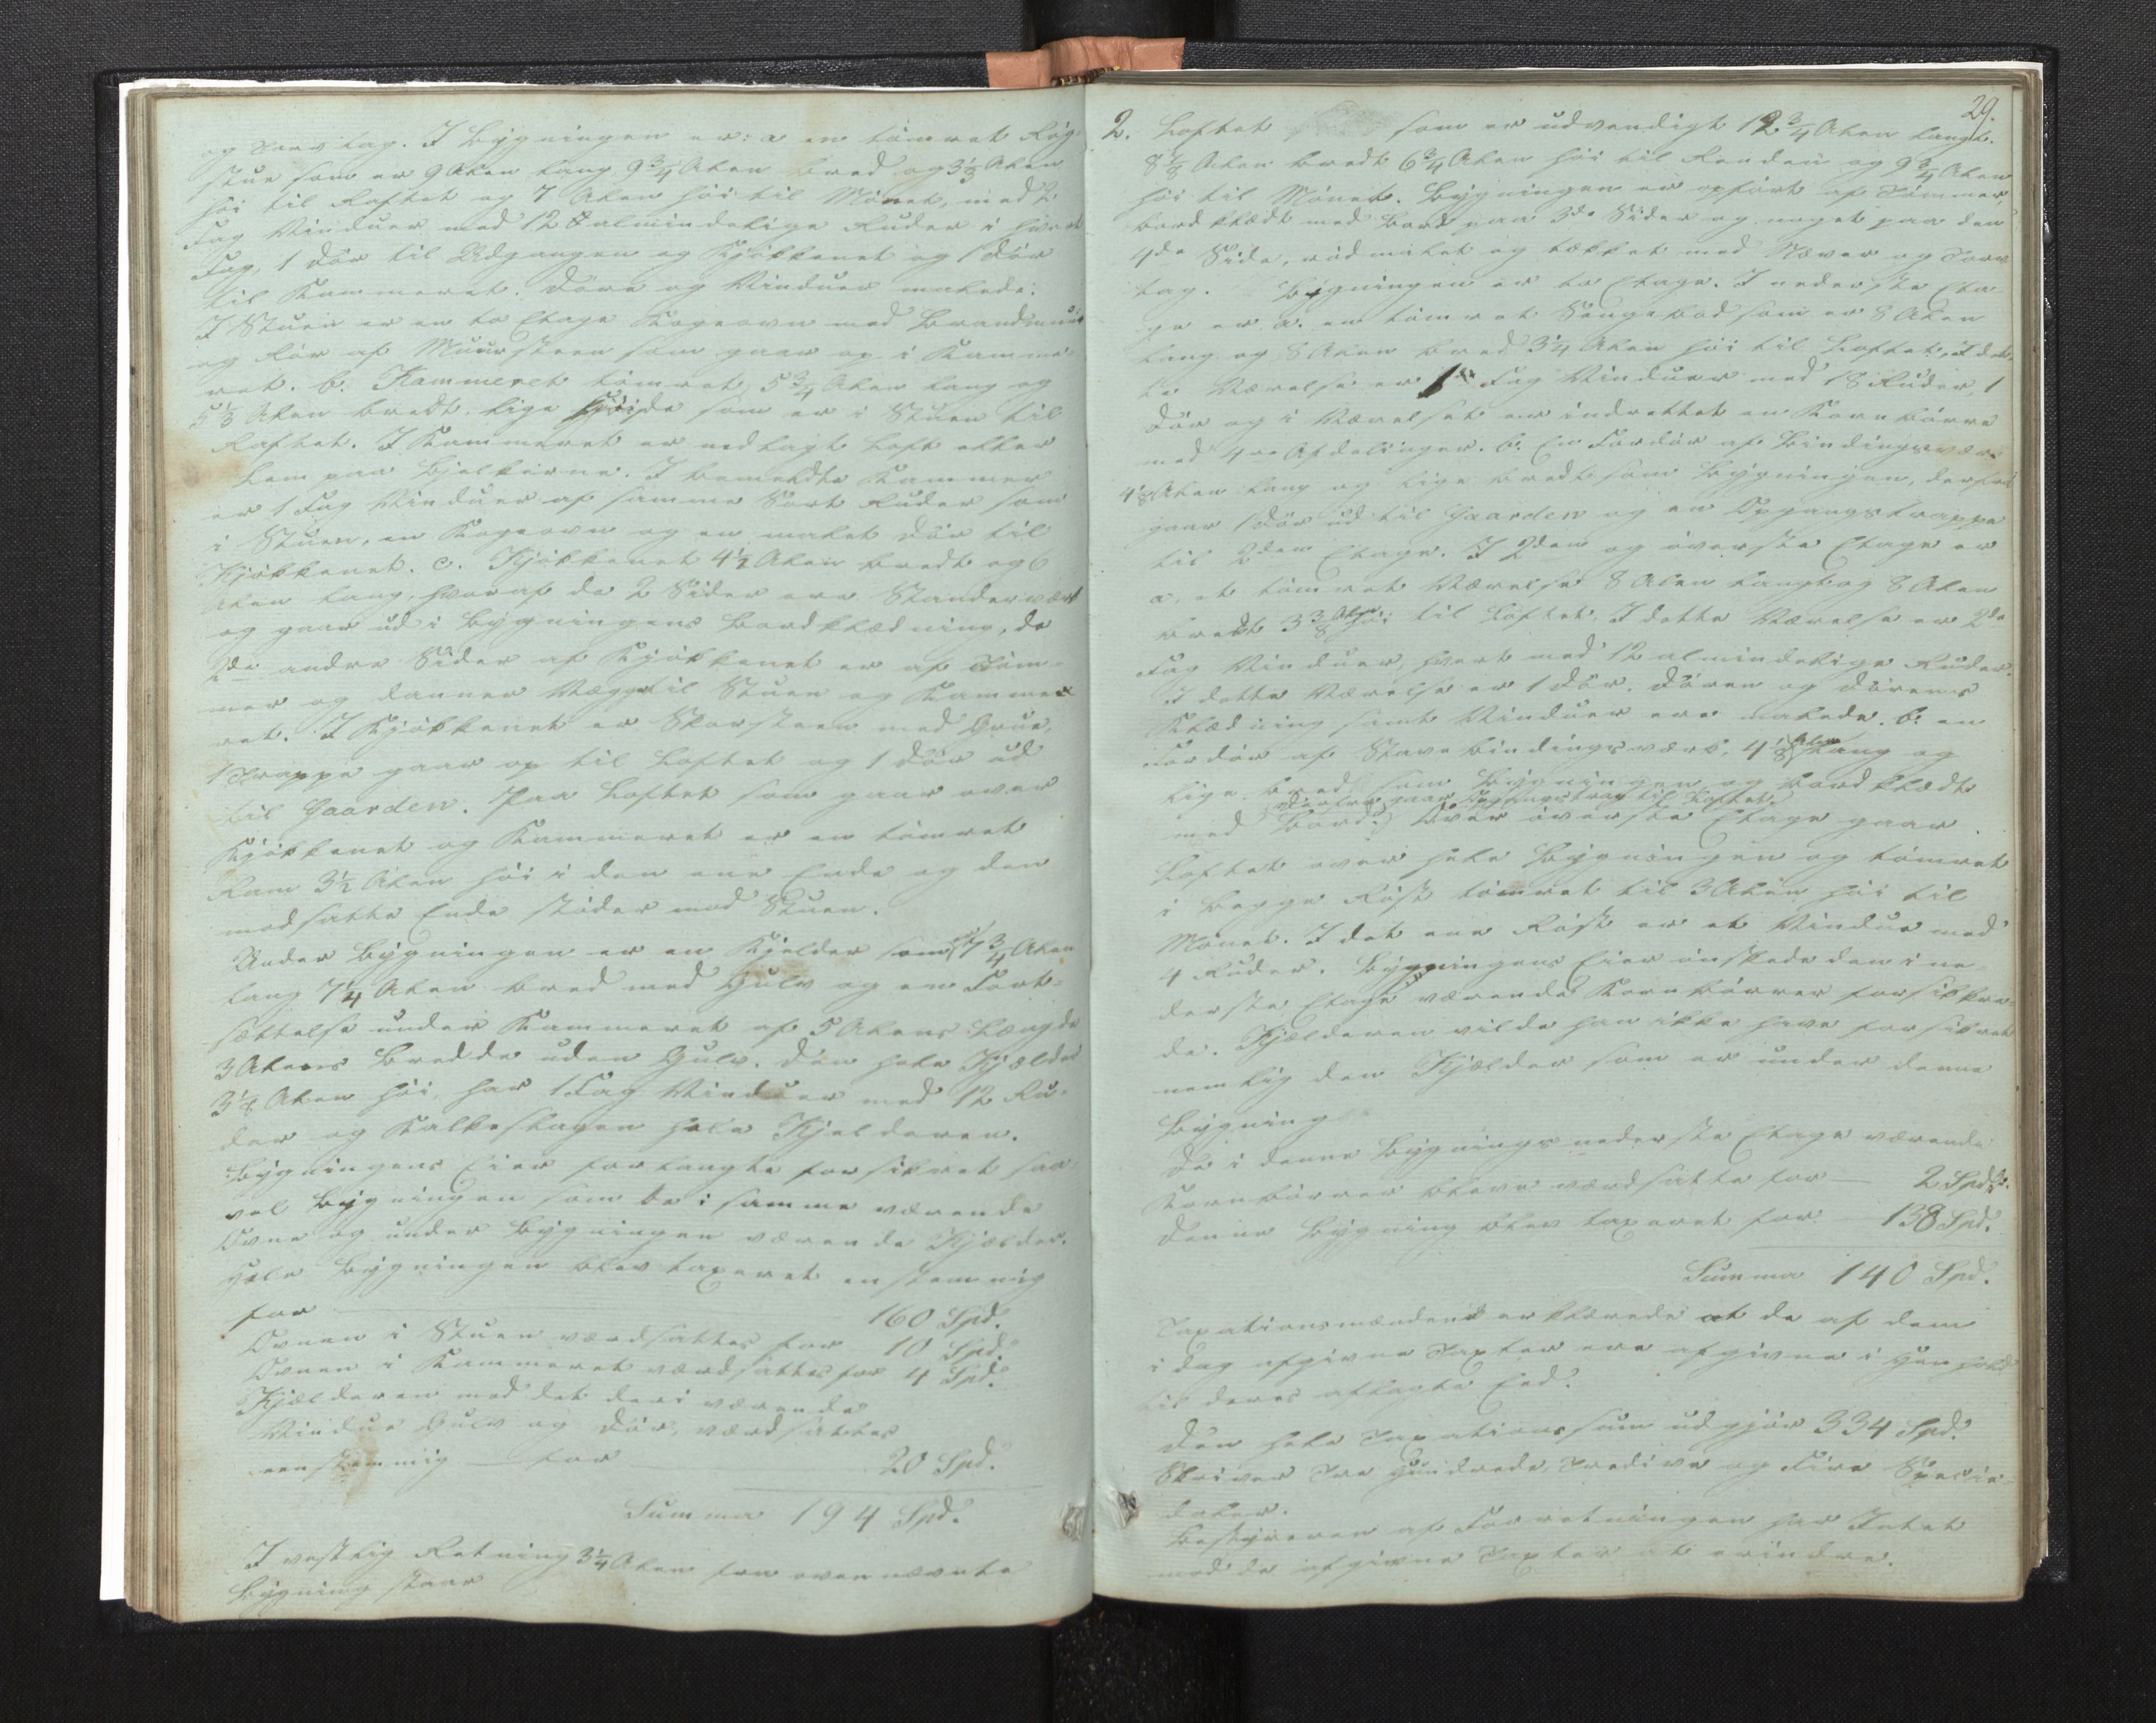 og Torv tag. I Bygningen er: a en tömret Røg
stue som er 9 Alen lang 9 3/4 Alen bred og 3 1/3 Alen
höi til Raftet og 7 Alen höi til Mönet, med 2
Fag Vinduer med 12 almindelige Ruder i hvert
Fag, 1 Dör til Udgangen og Kjökkenet og 1 Dör
til Kammeret. Döre og Vinduer malede.
I Stuen er en to Etage Kogeovn med Brandmuur
og Rör af Muursteen som gaar op i Kamme-
ret. b. Kammeret tömret, 5 3/4 Alen lang og
5 1/3 Alen bredt, lige Höide som er i Stuen til
Raftet. I Kammeret er nedlagt Loft eller
Lem paa Bjelkerne. I bemeldte Kammer
er 1 Fag Vinduer af samme Sort Ruder som
i Stuen, en Kogeovn og en malet Dör til
Kjökkenet. c. Kjökkenet 4 1/2 Alen bredt og 6
Alen lang, hvoraf de 2 Sider ere Standerværk
og gaar ud i Bygningens Bordklædning, de
2de andre Sider af Kjökkenet er af Töm-
mer og danner Vægge til Stuen og Kamme-
ret. I Kjökkenet er Skorsteen med Grue,
1 Trappe gaar op til Loftet og 1 Dör ud
til Gaarden. Paa Loftet som gaar over
Kjökkenet og Kammeret er en tömret
Ram 3 1/2 Alen höi i den ene Ende og den
modsatte Ende støder mod Stuen.
Under Bygningen er en Kjelder som er 7 3/4 Alen
lang 7 1/4 Alen bred med Gulv og en Fort-
sættelse under Kammeret af 5 Alens Længde
3 Alens Bredde uden Gulv. Den hele Kjælder
3 1/8 Alen höi, har 1 Fag Vinduer med 12 Ru-
der og Kalkeslagen hele Kjelderen.
Bygningens Eier forlangte forsikret saa-
vel Bygningen som de i samme værende
Ovne og under Bygningen værende Kjælder.
Hele Bygningen blev taxeret enstemmig
for 160 Spd.
Ovnen i Stuen værdsattes for 10 Spd.
Ovnen i Kammeret værdsattes for 4 Spd.
Kjælderen med det deri værende
Vindue Gulv og Dör, værdsattes
eenstemmig for 20 Spd.
Summa 194 Spd.
I vestlig Retning 3 1/4 Alen fra ovennævnte
Bygning staar
29.
2. Loftet som er udvendigt 12 3/4 Alen langt.
8 1/8 Alen bredt 6 3/4 Alen höi til Renden og 9 3/4 Alen
höi til Mönet. Bygningen er opfört af Tömmer
bordklædt med Bord paa 3de Sider og noget paa den
4de Side, rödmalet og tækket med Næver og Torv
tag. Bygningen er to Etage. I nederste Eta-
ge er a. en tömret Sengebod som er 8 Alen
lang og 8 Alen bred 3 1/4 Alen höi til Loftet. I det-
te Værelse er 1 Fag Vinduer med 18 Ruder, 1
Dör og i Værelset er indrettet en Kornbörre
med 4re Afdelinger. b. En Fordör af Bindingsværk
4 1/8 Alen lang og lige bredt som Bygningen, derfra
gaar 1 Dör ud til Gaarden og en Opgangstrappe
til 2den Etage. I 2den og överste Etage er
a. et tömret Værelse 8 Alen langt og 8 Alen
bredt 3 3/8 Alen höi til Loftet. I dette Værelse er 2de
Fag Vinduer, hvert med 12 almindelige Ruder.
I dette Værelse er 1 Dör. Dören og Dörens
Klædning samt Vinduer ere malede. b. en
Fordör af Stavebindingsværk, 4 1/8 Alen lang og
lige bred som Bygningen og bordklædt
derfra gaar Opgangstrap til Loftet.
med Bord. Over överste Etage gaar
Loftet over hele Bygningen og tömret
i begge Röst tömret til 3 Alen höi til
Mönet. I det ene Röst er et Vindue med
4 Ruder. Bygningens Eier önskede den i ne-
derste Etage værende Kornbörrer forsikkre-
de. Kjælderen vilde han ikke have forsikret
nemlig den Kjælder som er under denne
Bygning
De i denne Bygnings nederste Etage værende
Kornbörrer bleve værdsatte for 2 Spd.
Denne Bygning blev taxeret for 138 Spd.
Summa 140 Spd.
Taxationsmændene erklærede at de af dem
i Dag afgivne Taxter ere afgivne i Henhold
til deres aflagte Eed.
Den hele Taxationssum udgjör 334 Spd.
Skriver Tre Hundrede, Tredive og Fire Specie-
daler.
Bestyreren af Forretningen har Intet
mod de afgivne Taxter at erindre.